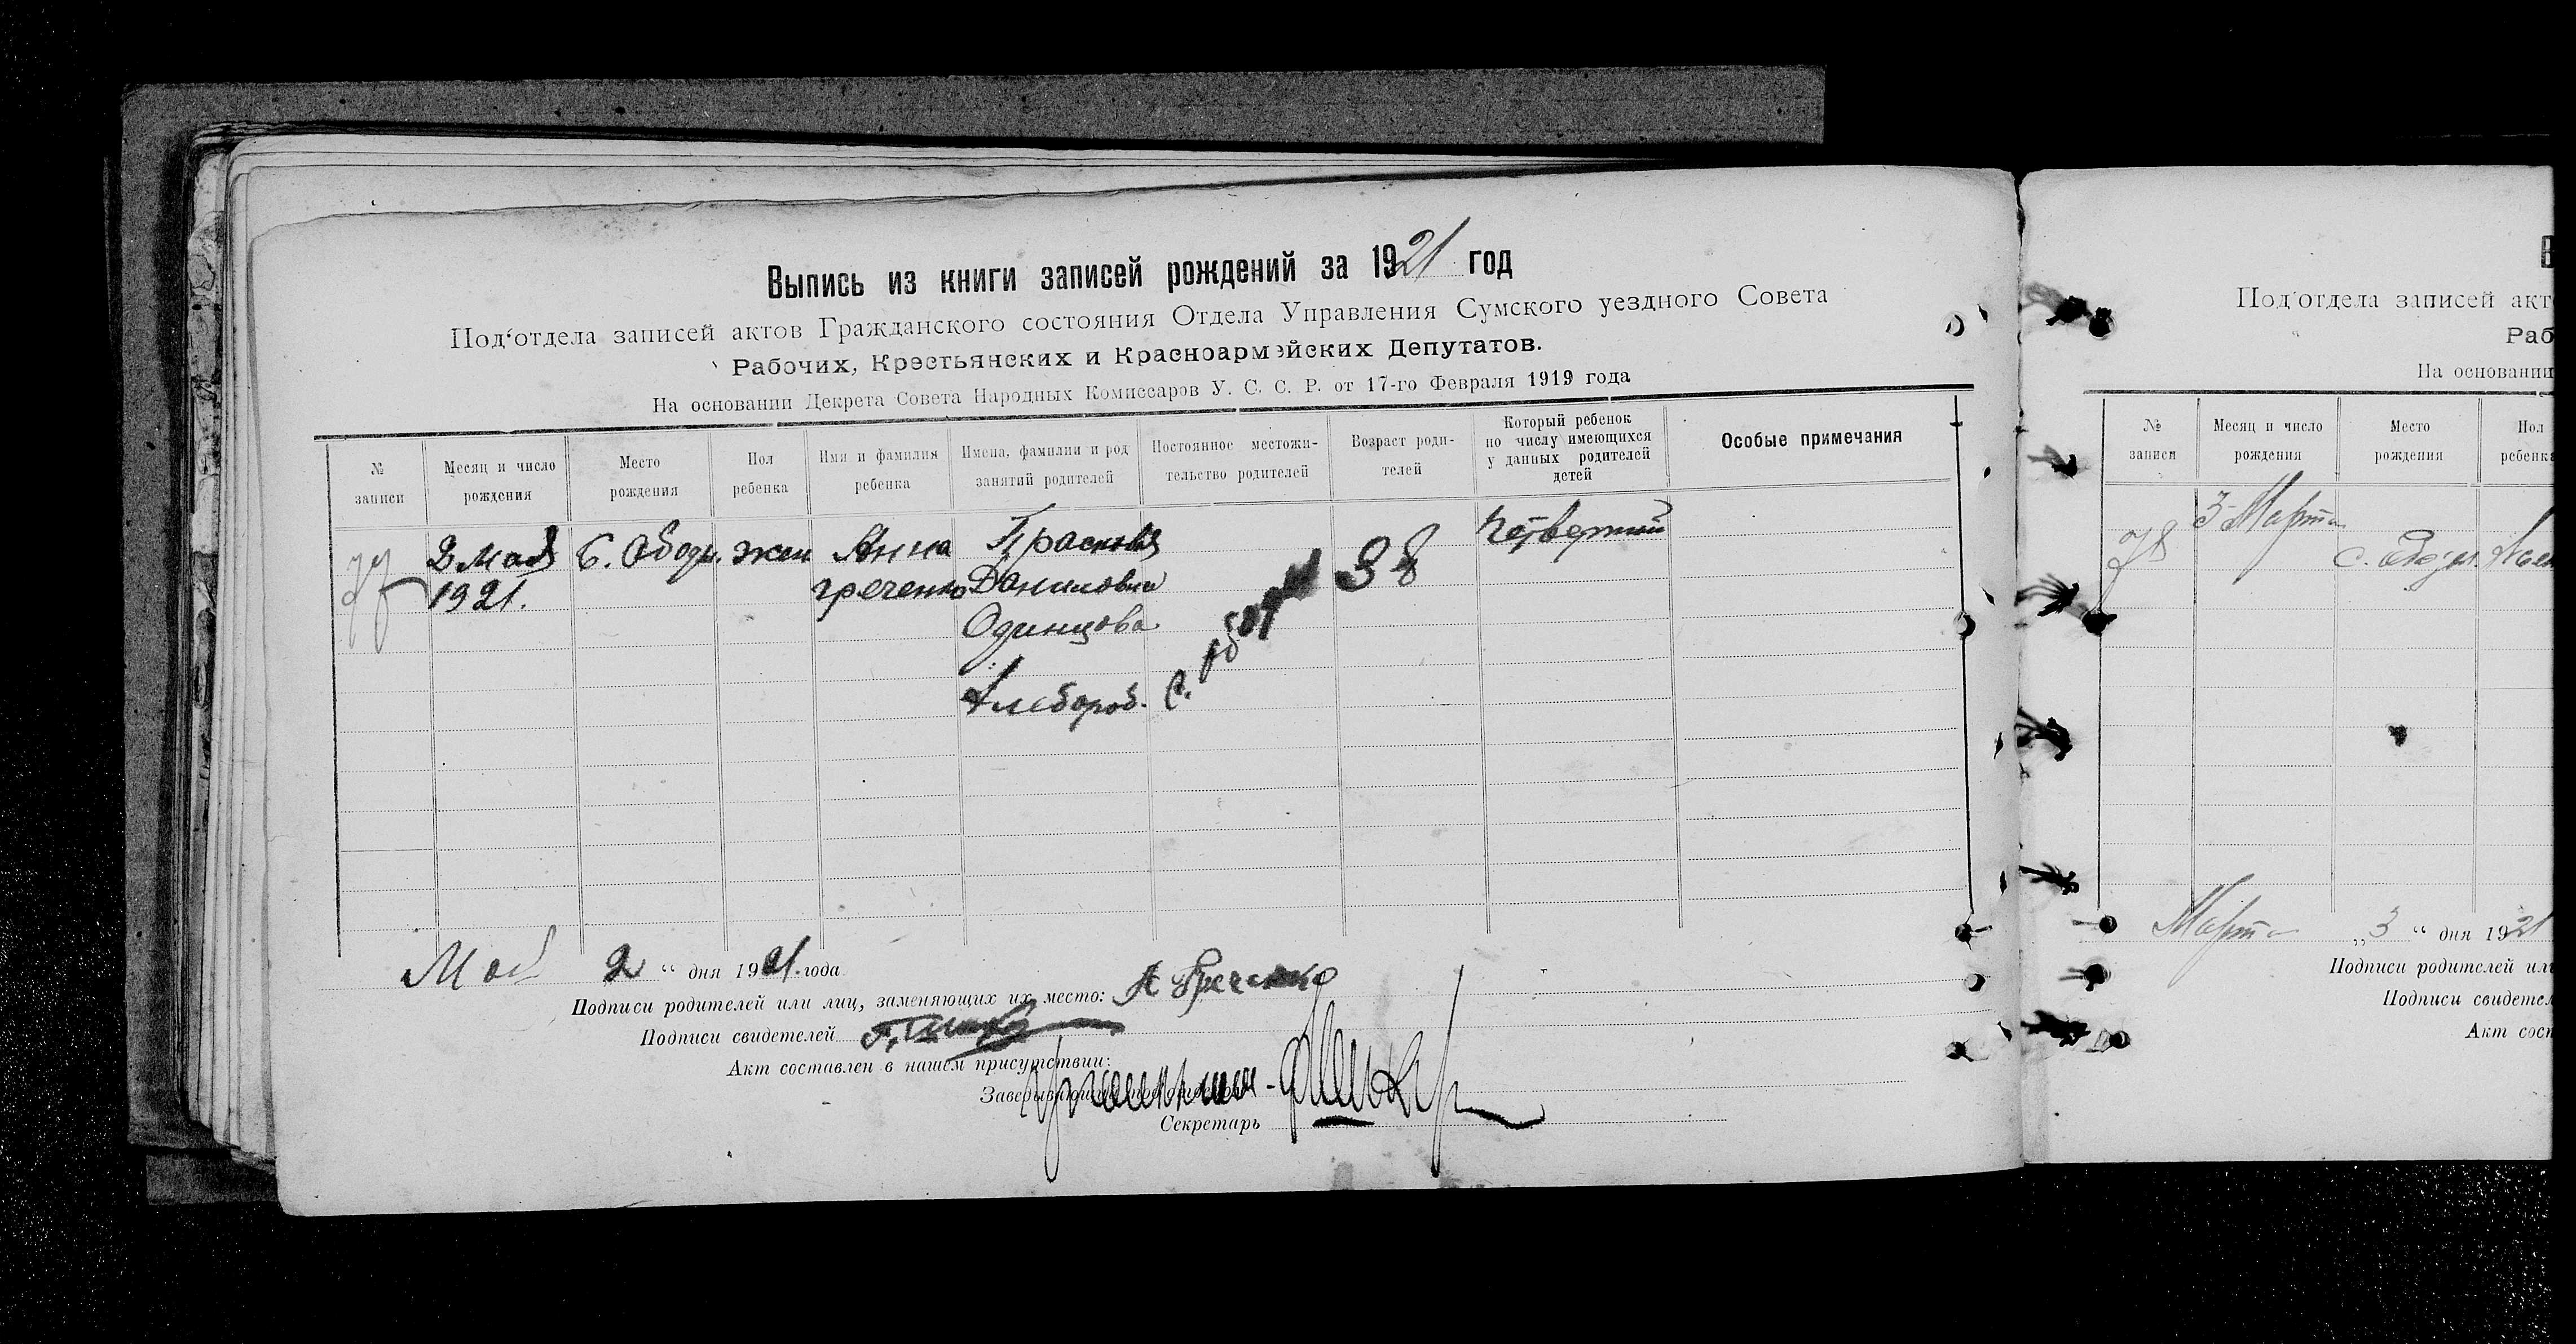 Выпись из книги записей рождений за 1921 год
Под'отдела записей актов Гражданского состояния Отдела Управления Сумского уездного Совета
Рабочих, Крестьянских и Красноармейских Депутатов.
На основании Декрета Совета Народных Комиссаров У. С. С. Р. от 17-го Февраля 1919 года
№ записи
Месяц и число рождения
Место рождения
Пол ребенка
Имя и фамилия ребенка
Имена, фамилии и род занятий родителей
Постоянное местожительство родителей
Возраст родителей
Который ребенок по числу имеющихся у данных родителей детей
Особые примечания
77
2 мая
1921.
С. Ободы.
жен
Анна
Греченко
Прасковья
Даниловна
Одинцова
Хлебороб.
с.
38
Четвертый
Мая 2 " дня 1921. года
Подписи родителей или лиц, заменяющих их место: А Греченко
Подписи свидетелей
Акт составлен в нашем присутствии:
Секретарь
В
Под'отдела записей акт
Раб
На основании
№ записи
Месяц и число рождения
Место рождения
Пол ребенка
78
3 Марта
Марта „ 3 " дня 1921
Подписи родителей или
Подписи свидетел
Акт сост